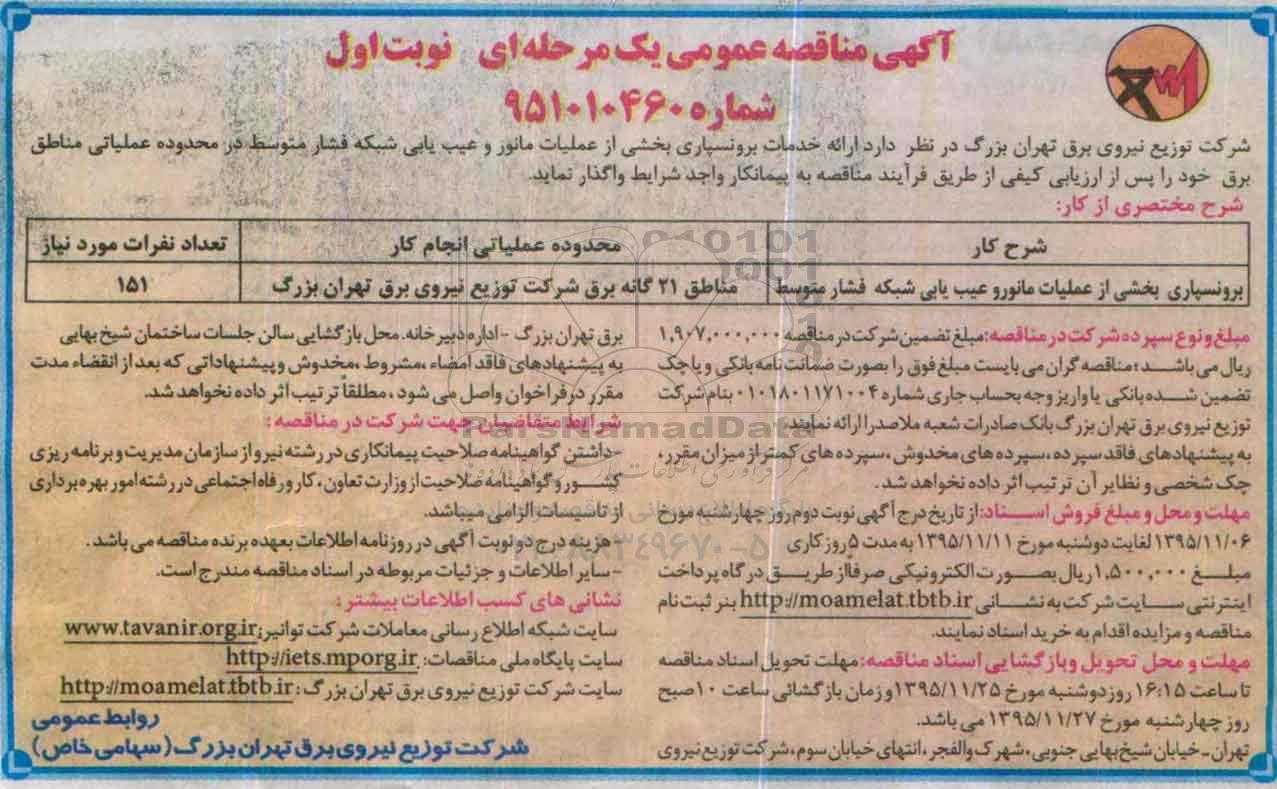 آگهی مناقصه عمومی یک مرحله ای نوبت اول
شماره ۹۵۱۰۱۰۴۶۰
شرکت توزیع نیروی برق تهران بزرگ در نظر دارد ارائه خدمات برونسپاری بخشی از عملیات مانور و عیب یابی شبکه فشار متوسط در محدوده عملیاتی مناطق
برق خود را پس از ارزیابی کیفی از طریق فرآیند مناقصه به پیمانکار واجد شرایط واگذار نماید.
شرح مختصری از کار:
شرح کار
محدوده عملیاتی انجام کار
تعداد نفرات مورد نیاز
برونسپاری بخشی از عملیات مانورو عیب یابی شبکه فشار متوسط
مناطق ۲۱ گانه برق شرکت توزیع نیروی برق تهران بزرگ
۱۵۱
مبلغ و نوع سپرده شرکت در مناقصه: مبلغ تضمین شرکت در مناقصه ۱,۹۰۷,۰۰۰,۰۰۰
ریال می باشد ؛ مناقصه گران می بایست مبلغ فوق را بصورت ضمانت نامه بانکی و یا چک
تضمین شده بانکی یا واریز وجه بحساب جاری شماره ۰۱۰۱۸۰۱۱۷۱۰۰۴ بنام شرکت
توزیع نیروی برق تهران بزرگ بانک صادرات شعبه ملاصدرا ارائه نمایند.
به پیشنهادهای فاقد سپرده ، سپرده های مخدوش ، سپرده های کمتر از میزان مقرر،
چک شخصی و نظایر آن ترتیب اثر داده نخواهد شد .
مهلت و محل و مبلغ فروش اسناد: از تاریخ درج آگهی نوبت دوم روز چهارشنبه مورخ
۱۳۹۵/۱۱/۰۶ لغایت دوشنبه مورخ ۱۳۹۵/۱۱/۱۱ به مدت ۵ روز کاری
مبلغ ۱,۵۰۰,۰۰۰ ریال بصورت الکترونیکی صرفاً از طریق درگاه پرداخت
اینترنتی سایت شرکت به نشانی http://moamelat.tbtb.ir بنر ثبت نام
مناقصه و مزایده اقدام به خرید اسناد نمایند.
مهلت و محل تحویل و بازگشایی اسناد مناقصه: مهلت تحویل اسناد مناقصه
تا ساعت ۱۶:۱۵ روز دوشنبه مورخ ۱۳۹۵/۱۱/۲۵ و زمان بازگشائی ساعت ۱۰ صبح
روز چهارشنبه مورخ ۱۳۹۵/۱۱/۲۷ می باشد.
تهران - خیابان شیخ بهایی جنوبی، شهرک والفجر، انتهای خیابان سوم، شرکت توزیع نیروی
برق تهران بزرگ - اداره دبیرخانه. محل بازگشایی سالن جلسات ساختمان شیخ بهایی
به پیشنهادهای فاقد امضاء ، مشروط ، مخدوش و پیشنهاداتی که بعد از انقضاء مدت
مقرر در فراخوان واصل می شود ، مطلقاً ترتیب اثر داده نخواهد شد.
شرایط متقاضیان جهت شرکت در مناقصه :
-داشتن گواهینامه صلاحیت پیمانکاری در رشته نیرو از سازمان مدیریت و برنامه ریزی
کشور و گواهینامه صلاحیت از وزارت تعاون، کار و رفاه اجتماعی در رشته امور بهره برداری
از تاسیسات الزامی میباشد.
-هزینه درج دو نوبت آگهی در روزنامه اطلاعات بعهده برنده مناقصه می باشد .
-سایر اطلاعات و جزئیات مربوطه در اسناد مناقصه مندرج است.
نشانی های کسب اطلاعات بیشتر :
سایت شبکه اطلاع رسانی معاملات شرکت توانیر: www.tavanir.org.ir
سایت پایگاه ملی مناقصات: http://iets.mporg.ir
سایت شرکت توزیع نیروی برق تهران بزرگ : http://moamelat.tbtb.ir
روابط عمومی
شرکت توزیع نیروی برق تهران بزرگ (سهامی خاص)
ParsNamadData
۸۸۳۴۹۶۷۰-۵